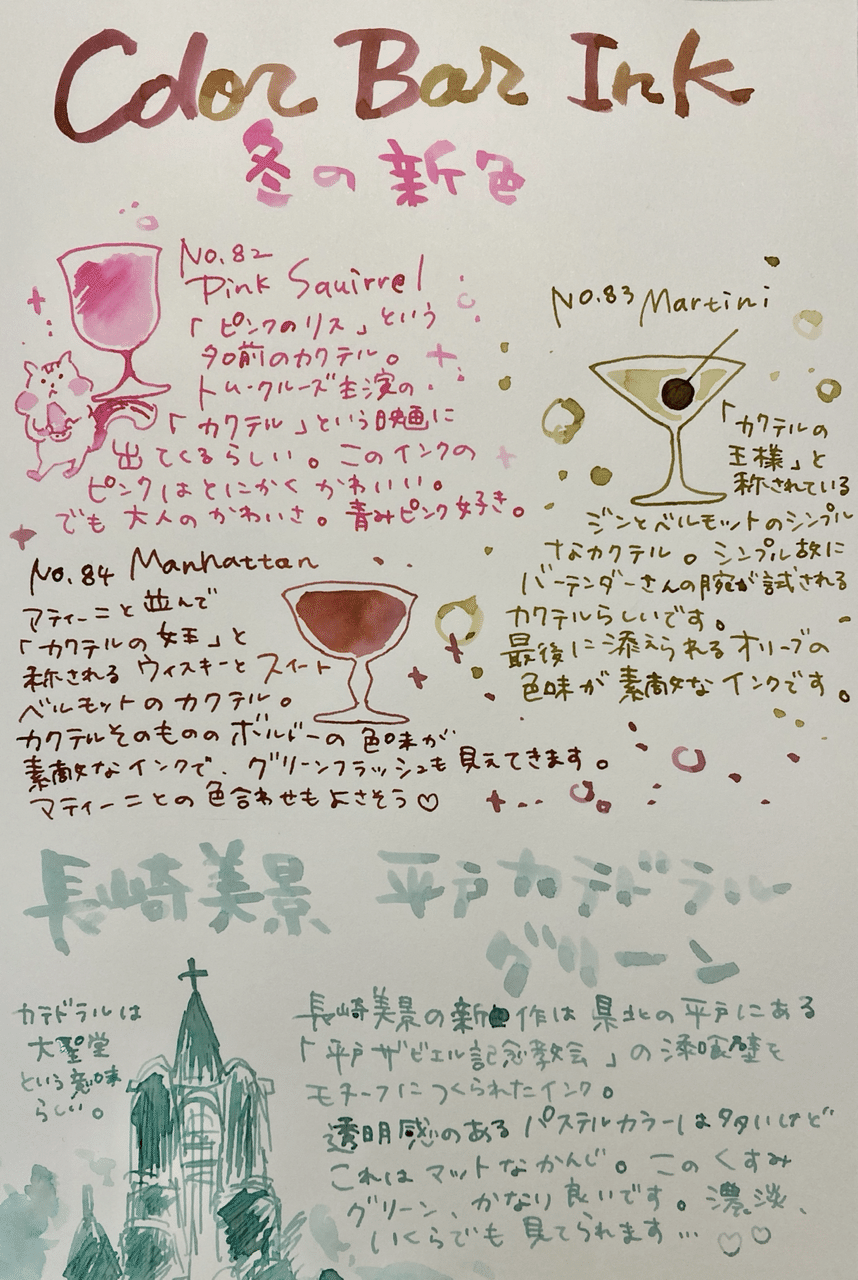 Color Bar Ink
冬の新色
No.82
Pink Squirrel
「ピンクのリス」という
名前のカクテル。
トム・クルーズ主演の
「カクテル」という映画に
出てくるらしい。このインクの
ピンクはとにかくかわいい。
でも大人のかわいさ。青みピンク好き。
No.83 Martini
「カクテルの
王様」と
称されている
ジンとベルモットのシンプル
なカクテル。シンプル故に
バーテンダーさんの腕が試される
カクテルらしいです。
最後に添えられるオリーブの
色味が素敵なインクです。
No.84 Manhattan
マティーニと並んで
「カクテルの女王」と
称されるウィスキーとスイート
ベルモットのカクテル。
カクテルそのもののボルドーの色味が
素敵なインクで、グリーンフラッシュも見えてきます。
マティーニとの色合わせもよさそう♡
長崎美景 平戸カテドラル
グリーン
カテドラルは
大聖堂
という意味
らしい。
長崎美景の新作は県北の平戸にある
「平戸ザビエル記念教会」の漆喰壁を
モチーフにつくられたインク。
透明感のあるパステルカラーは多いけど
これはマットなかんじ。このくすみ
グリーン、かなり良いです。濃淡、
いくらでも見てられます…♡♡